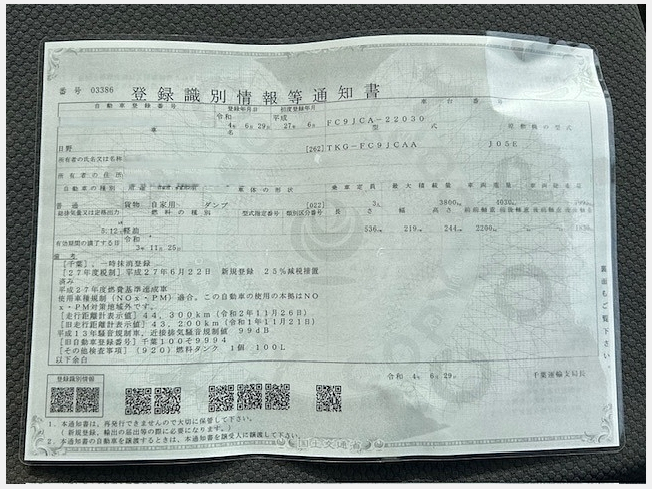 番号 03386 登録識別情報等通知書
自動車登録番号 登録年月日 初度登録年月 車台番号
令和 平成
4年 6月 29日 27年 6月 FC9JCA-22030
車名 型式 原動機の型式
日野 [262] TKG-FC9JCAA J05E
所有者の氏名又は名称
所有者の住所
自動車の種別 用途 車体の形状 乗車定員 最大積載量 車両重量 車両総重量
普通 貨物 自家用 ダンプ [022] 3人 3800kg 4030kg
総排気量又は定格出力 燃料の種類 型式指定番号 類別区分番号 長さ 幅 高さ
5.12 軽油 536cm 219cm 244cm 2260kg
有効期間の満了する日 令和
3年 11月 25日
備考
[千葉],一時抹消登録
[27年度税制] 平成27年6月22日 新規登録 25%減税措置
済み
平成27年度燃費基準達成車
使用車種規制(NOx・PM)適合,この自動車の使用の本拠はNO
x・PM対策地域外です。
[走行距離計表示値] 44,300km (令和2年11月26日)
[旧走行距離計表示値] 43,200km (令和1年11月21日)
平成13年騒音規制車,近接排気騒音規制値 99dB
[旧自動車登録番号] 千葉100そ9994
[その他検査事項] (920) 燃料タンク 1個 100L
以下余白
裏面もご覧下さい。
登録識別情報
令和 4年 6月 29日 千葉運輸支局長
1. 本通知書は、再発行できませんので大切に保管して下さい。
(新規登録、輸出の届出等の際に必要になります。)
2. 本通知書の自動車を譲渡するときは、本通知書を譲受人に譲渡して下さい。
国土交通省